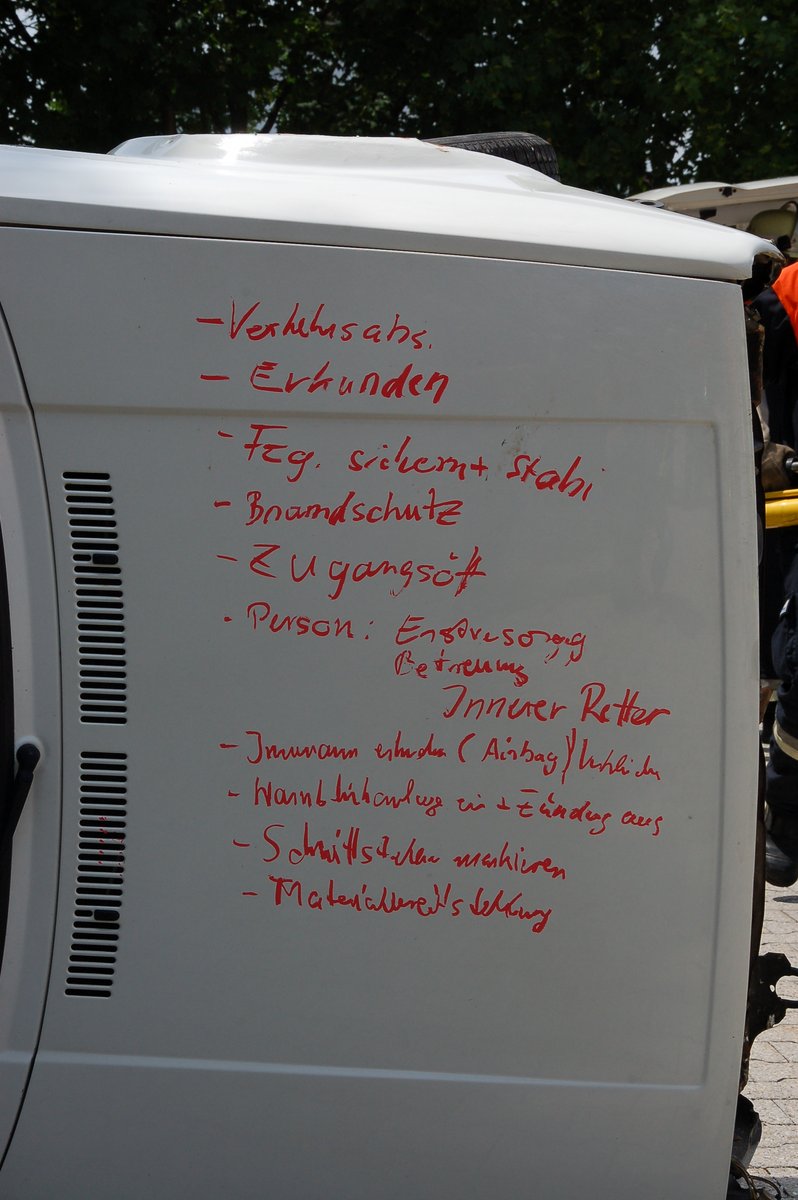 - Verkehrsabs.
- Erkunden
- Fzg. sichern + Stabi
- Brandschutz
- Zugangsöff
- Person: Erstversorgung
Betreuung
Innerer Retter
- Innenraum erkunden (Airbag)
- Warnblinkanlage ein + Zündung aus
- Schnittstellen markieren
- Materialbereitstellung